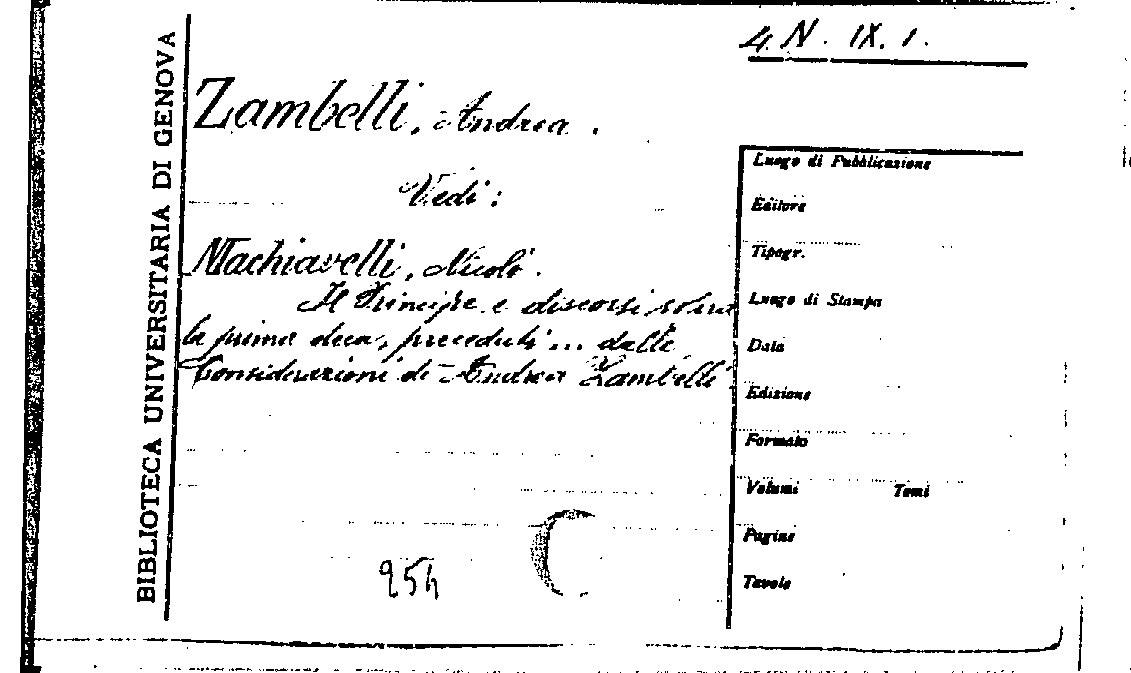 BIBLIOTECA UNIVERSITARIA DI GENOVA
4. N. IX. 1.
Zambelli, Andrea.
Vedi:
Machiavelli, Nicolò.
Il Principe e discorsi sovra
la prima deca, preceduti ... dalle
Considerazioni di Andrea Zambelli.
954
Luogo di Pubblicazione
Editore
Tipogr.
Luogo di Stampa
Data
Edizione
Formato
Volumi Tomi
Pagine
Tavole